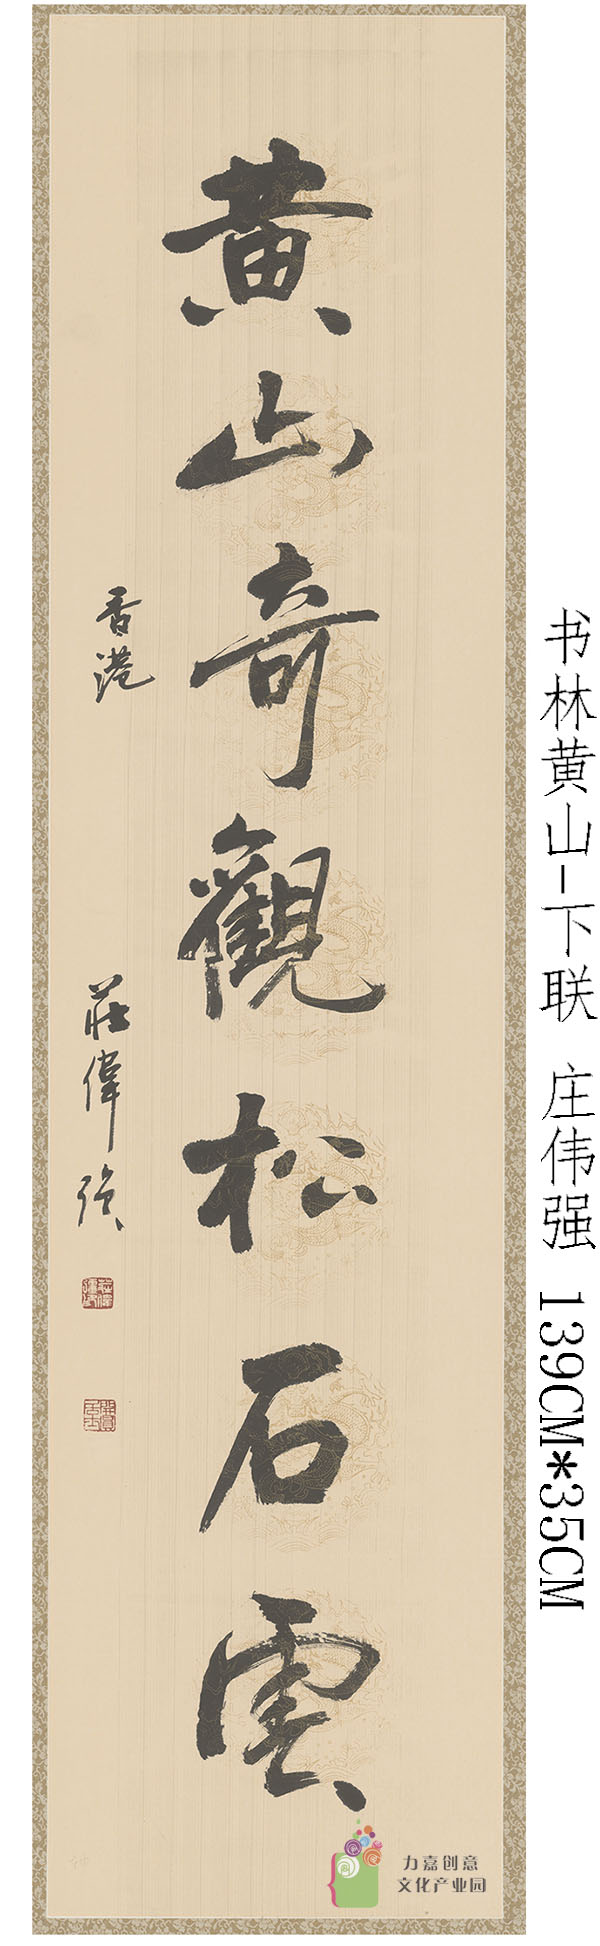 黄山奇觀松石雲
香港
莊偉强
书林黄山-下联 庄伟强 139CM*35CM
力嘉创意
文化产业园